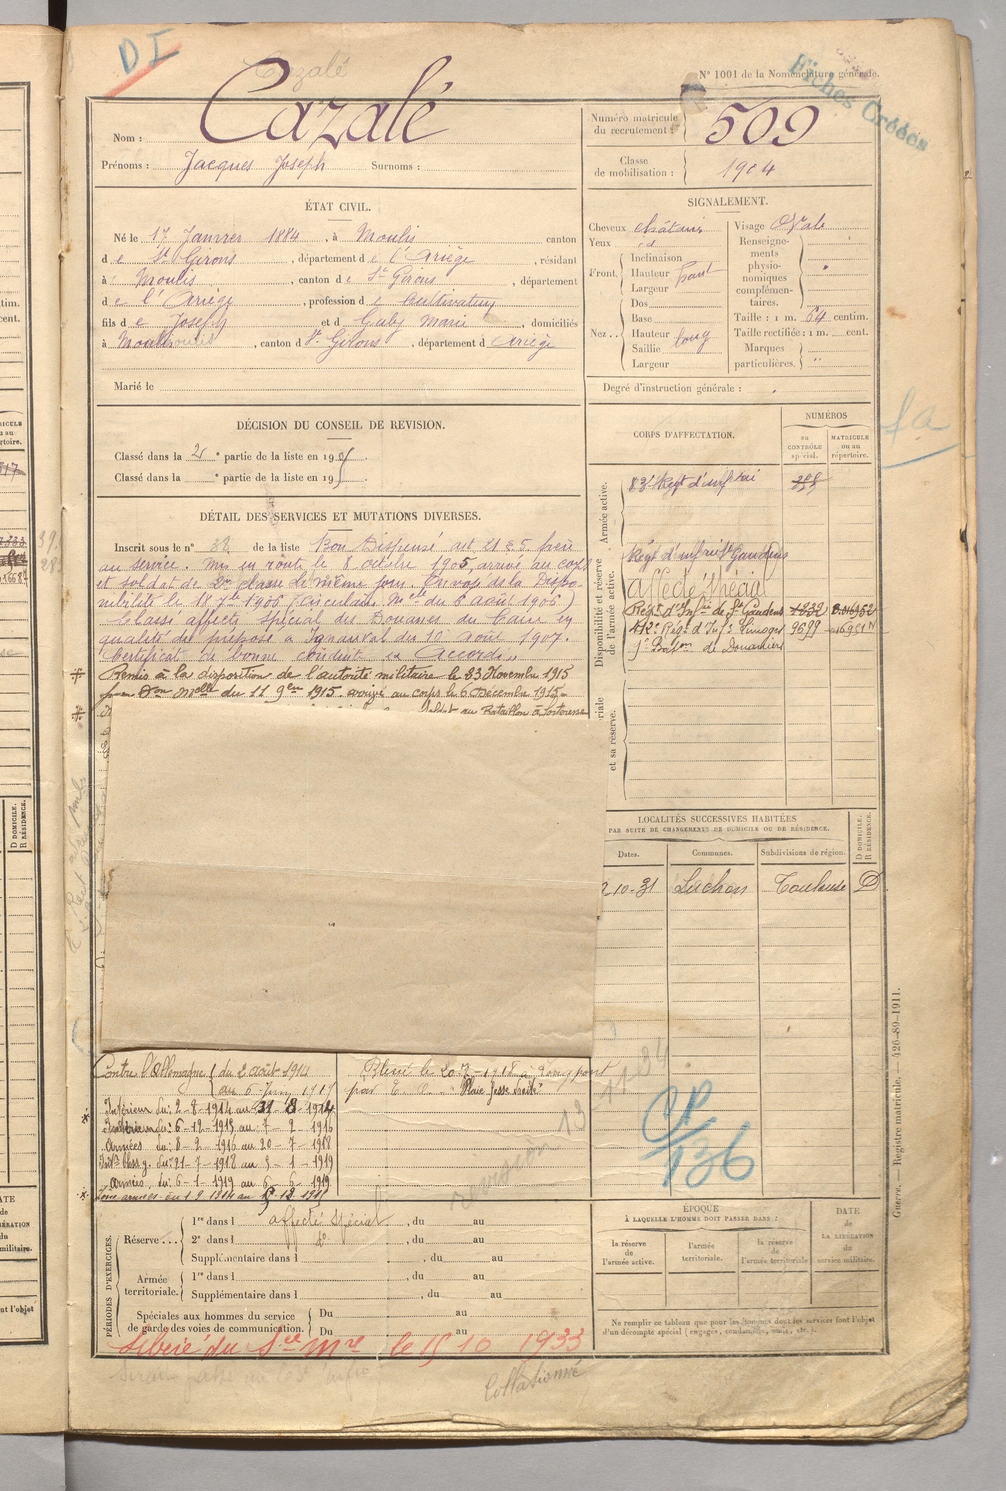 DI
Cazalé
N° 1001 de la Nomenclature générale.
Fiches Créées
Nom : Cazalé
Prénoms : Jacques Joseph Surnoms :
Numéro matricule du recrutement : 509
Classe de mobilisation : 1904
ÉTAT CIVIL.
Né le 17 Janvier 1884, à Moulis canton
de St Girons, département de l'Ariège, résidant
à Moulis, canton de St Girons, département
de l'Ariège, profession de Cultivateur
fils de Joseph et d Marie, domiciliés
à Moulis, canton d St Girons, département d Ariège
Marié le
SIGNALEMENT.
Cheveux châtains
Yeux id
Front. Inclinaison
Hauteur haut
Largeur
Nez. Dos
Base
Hauteur long
Saillie
Largeur
Visage Ovale
Renseignements physionomiques complémentaires.
Taille : 1 m. 64 centim.
Taille rectifiée : 1 m. cent.
Marques particulières.
Degré d'instruction générale :
DÉCISION DU CONSEIL DE REVISION.
Classé dans la 2e partie de la liste en 1905.
Classé dans la e partie de la liste en 19
DÉTAIL DES SERVICES ET MUTATIONS DIVERSES.
Inscrit sous le n° 38 de la liste Bon Dispensé art 21 frère
au service. Mis en route le 8 octobre 1905, arrivé au corps
et soldat de 2e classe le même jour. Envoyé dans la Dispo-
nibilité le 18 7bre 1906 (Circulaire Melle du 6 août 1906)
Classé affecté spécial des Douanes du en
qualité de préposé à du 10 août 1907.
Certificat de bonne conduite "Accordé"
Remis à la disposition de l'autorité militaire le 23 Novembre 1915
Melle du 11 9bre 1915. au corps le 6 Décembre 1915
Soldat au Bataillon
CORPS D'AFFECTATION.
NUMÉROS
au CONTRÔLE spécial.
MATRICULE ou au répertoire.
Armée active.
83e Régt d'infterie
Disponibilité et réserve de l'armée active.
Régt d'infrie St Gaudens
Affecté Spécial
Régt d'Infie de St Gaudens 1232
Régt d'Inf Limoges 9699
Baton de Douaniers
et sa réserve.
LOCALITÉS SUCCESSIVES HABITÉES
PAR SUITE DE CHANGEMENTS DE DOMICILE OU DE RÉSIDENCE.
Dates. Communes. Subdivisions de région. D DOMICILE. R RÉSIDENCE.
10-31 Luchon Toulouse D
Contre l'Allemagne du 2 août 1914
au 6 1919
Intérieur du : 2-8-1914 au 31-8-1914
Intérieur du : 6-12-1915 au 7-2-1916
Armées du : 8-2-1916 au 20-7-1918
Intr bless g. du : 21-7-1918 au 5-1-1919
Armées, du : 6-1-1919 au 6-6-1919
Blessé le 20-7-1918 à Longpont
par E. O. "Plaie fesse droite"
révision 13
CP
136
PÉRIODES D'EXERCICES.
Réserve... 1re dans l affecté spécial, du au
2e dans l do, du au
Supplémentaire dans l, du au
Armée territoriale. 1re dans l, du au
Supplémentaire dans l, du au
Spéciales aux hommes du service de garde des voies de communication. Du au
Du au
ÉPOQUE
À LAQUELLE L'HOMME DOIT PASSER DANS :
la réserve de l'armée active.
l'armée territoriale.
la réserve de l'armée territoriale
DATE de LA LIBÉRATION du service militaire.
Ne remplir ce tableau que pour les hommes dont les services font l'objet
d'un décompte spécial (engagés, condamnés, omis, etc.).
Libéré du Sce Mre le 15 10 1933
Collationné
Guerre. — Registre matricule. — 426-89-1911.